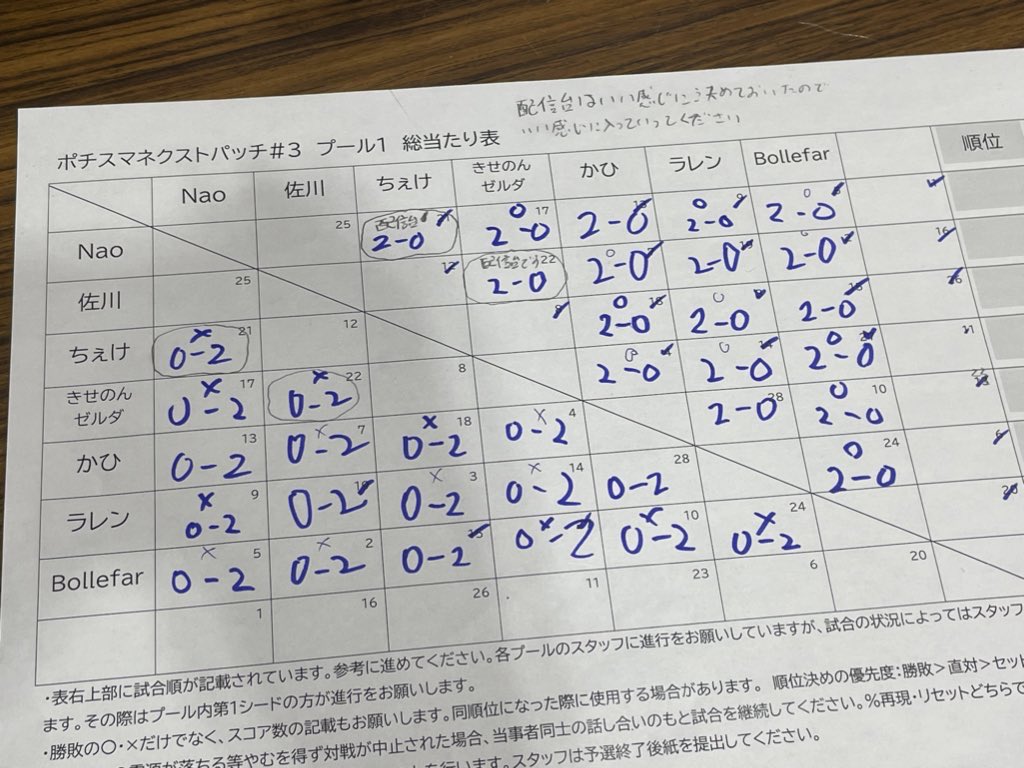 配信台はいい感じに決めておいたので
いい感じに入っていってください
ポチスマネクストパッチ#3 プール1 総当たり表
Nao 佐川 ちぇけ きせのん かひ ラレン Bollefar 順位
ゼルダ
25 配信台 17
Nao 2-0 2-0 2-0 2-0 2-0
25 配信台です 22
佐川 2-0 2-0 2-0 2-0
21 12
ちぇけ × 0-2 2-0 2-0 2-0
17 22 8
きせのん × 0-2 × 0-2 2-0 2-0 2-0
ゼルダ
13 7 18 4 28 10
かひ 0-2 × 0-2 × 0-2 × 0-2 2-0 2-0
9 3 14 28 24
ラレン × 0-2 0-2 × 0-2 × 0-2 0-2 2-0
5 2 10 24
Bollefar × 0-2 × 0-2 0-2 0×-2 × 0-2 × 0-2
1 16 26 11 23 6 20
・表右上部に試合順が記載されています。参考に進めてください。各プールのスタッフに進行をお願いしていますが、試合の状況によってはスタッフ
ます。その際はプール内第1シードの方が進行をお願いします。
・勝敗の〇・×だけでなく、スコア数の記載もお願いします。同順位になった際に使用する場合があります。 順位決めの優先度:勝敗>直対>セット
電源が落ちる等やむを得ず対戦が中止された場合、当事者同士の話し合いのもと試合を継続してください。%再現・リセットどちらで
を行います。スタッフは予選終了後紙を提出してください。